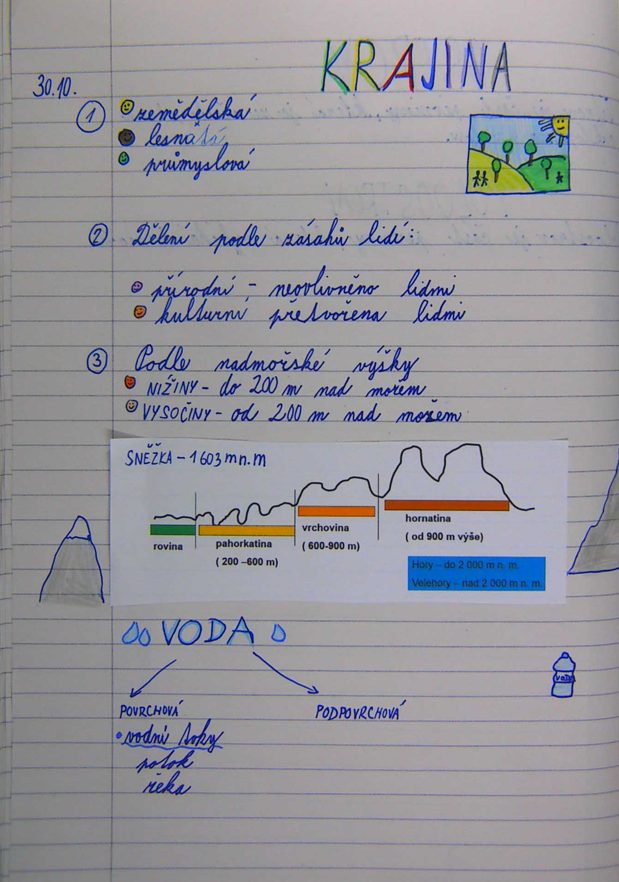 KRAJINA
30.10.
1 zemědělská
lesnatá
průmyslová
2 Dělení podle zásahů lidí:
přírodní - neovlivněno lidmi
kulturní přetvořena lidmi
3 Podle nadmořské výšky
NIŽINY - do 200 m nad mořem
VYSOČINY - od 200 m nad mořem
SNĚŽKA - 1 603 m n. m
rovina
pahorkatina
( 200 –600 m)
vrchovina
( 600-900 m)
hornatina
( od 900 m výše)
Hory – do 2 000 m n. m.
Velehory – nad 2 000 m n. m.
VODA
POVRCHOVÁ
PODPOVRCHOVÁ
• vodní toky
potok
řeka